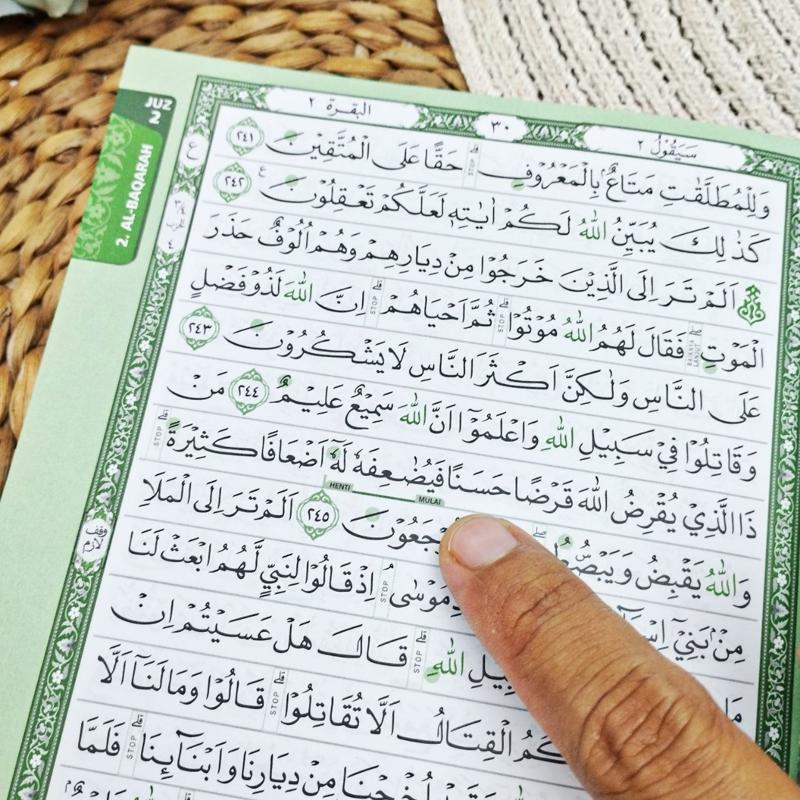 JUZ 2
2. AL-BAQARAH
سَيَقُوْلُ ٢
٣٠
البقرة ٢
وَلِلْمُطَلَّقٰتِ مَتَاعٌ ۢبِالْمَعْرُوْفِۗ حَقًّا عَلَى الْمُتَّقِيْنَ ٢٤١
كَذٰلِكَ يُبَيِّنُ اللّٰهُ لَكُمْ اٰيٰتِهٖ لَعَلَّكُمْ تَعْقِلُوْنَ ٢٤٢
اَلَمْ تَرَ اِلَى الَّذِيْنَ خَرَجُوْا مِنْ دِيَارِهِمْ وَهُمْ اُلُوْفٌ حَذَرَ
الْمَوْتِۖ فَقَالَ لَهُمُ اللّٰهُ مُوْتُوْاۗ ثُمَّ اَحْيَاهُمْۗ اِنَّ اللّٰهَ لَذُوْ فَضْلٍ
عَلَى النَّاسِ وَلٰكِنَّ اَكْثَرَ النَّاسِ لَا يَشْكُرُوْنَ ٢٤٣
وَقَاتِلُوْا فِيْ سَبِيْلِ اللّٰهِ وَاعْلَمُوْٓا اَنَّ اللّٰهَ سَمِيْعٌ عَلِيْمٌ ٢٤٤ مَنْ
ذَا الَّذِيْ يُقْرِضُ اللّٰهَ قَرْضًا حَسَنًا فَيُضٰعِفَهٗ لَهٗٓ اَضْعَافًا كَثِيْرَةًۗ
HENTI MULAI
وَاللّٰهُ يَقْبِضُ وَيَبْصُۣطُۖ تُرْجَعُوْنَ ٢٤٥ اَلَمْ تَرَ اِلَى الْمَلَاِ
مِنْۢ بَنِيْٓ مُوْسٰىۘ اِذْ قَالُوْا لِنَبِيٍّ لَّهُمُ ابْعَثْ لَنَا
اللّٰهِۗ قَالَ هَلْ عَسَيْتُمْ اِنْ
الْقِتَالُ اَلَّا تُقَاتِلُوْاۗ قَالُوْا وَمَا لَنَآ اَلَّا
مِنْ دِيَارِنَا وَاَبْنَاۤىِٕنَاۗ فَلَمَّا
وقف لازم